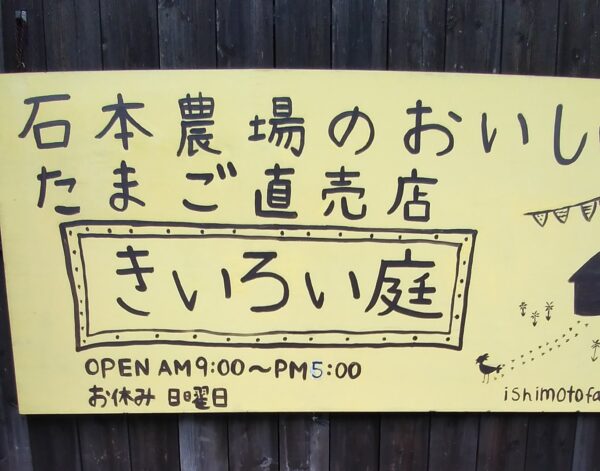 石本農場のおいし
たまご直売店
きいろい庭
OPEN AM9:00～PM5:00
お休み 日曜日
ishimotofa